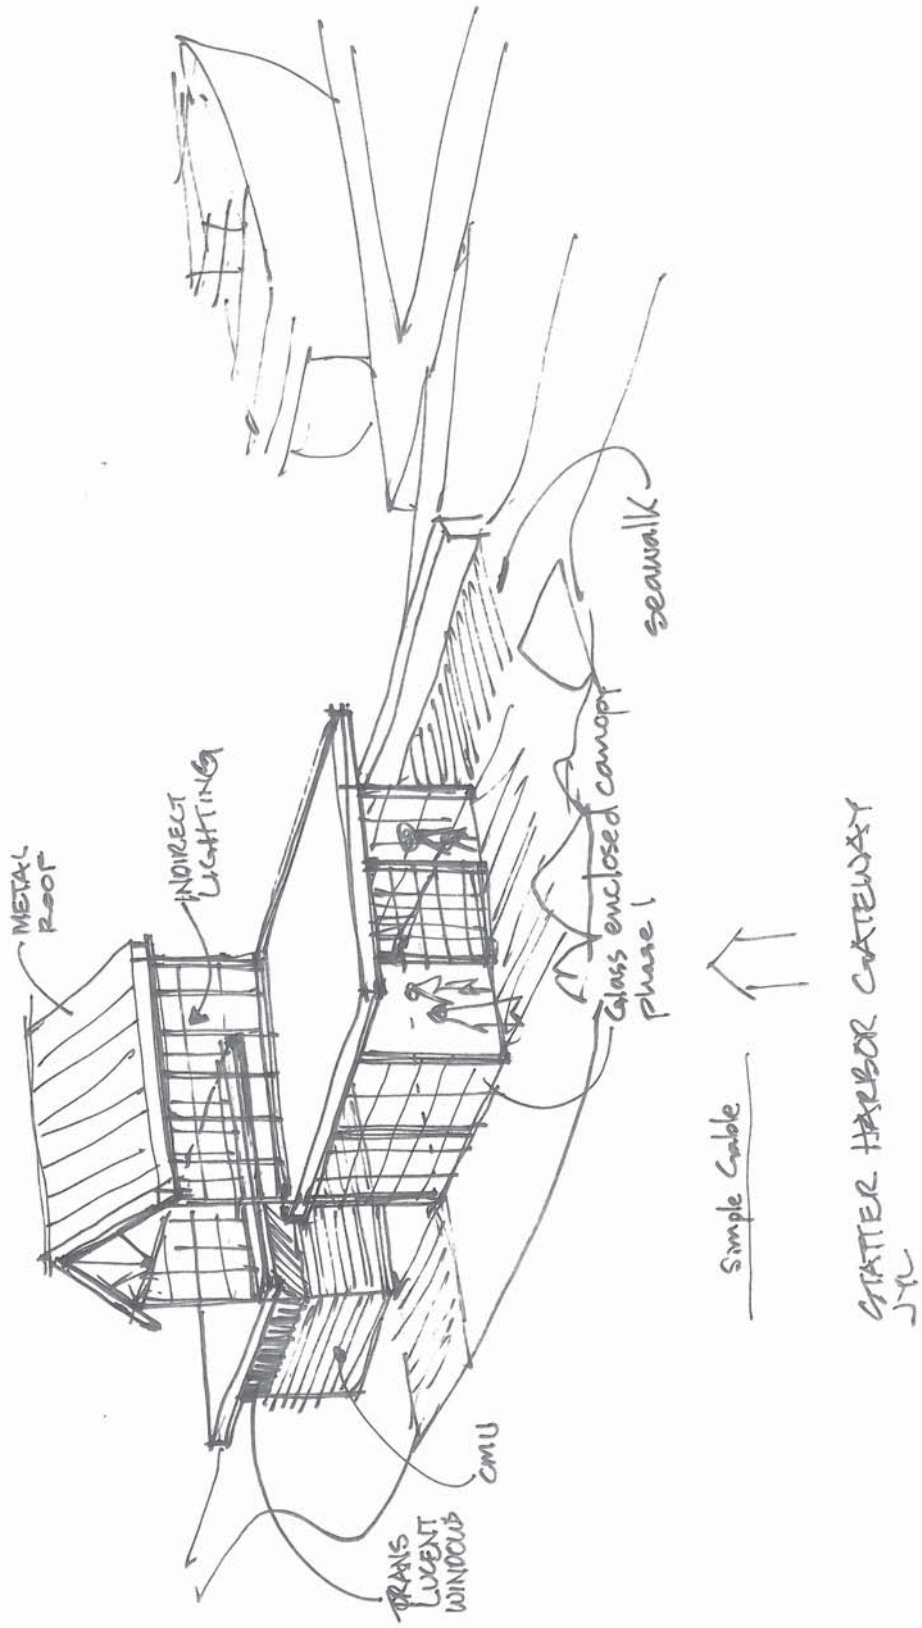 METAL
ROOF
INDIRECT
LIGHTING
TRANS
LUCENT
WINDOWS
CMU
Glass enclosed canopy
phase 1
seawalk
Simple Gable
STATTER HARBOR GATEWAY
JYL